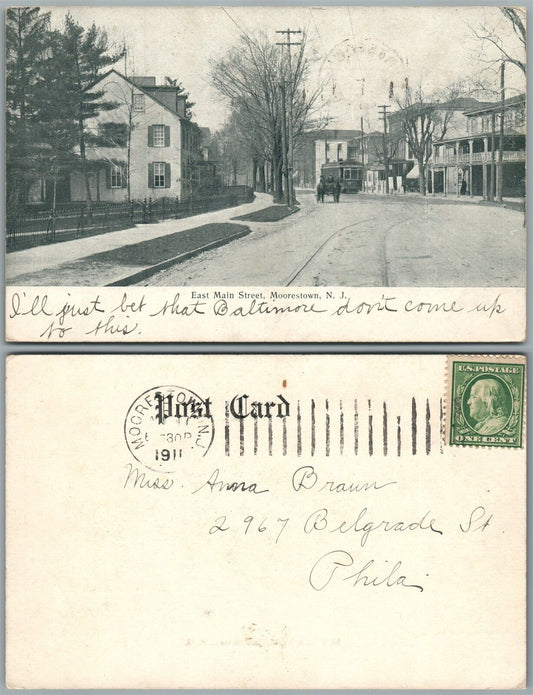 East Main Street, Moorestown, N. J.
I'll just bet that Baltimore don't come up
to this.
Post Card
MOORESTOWN, N.J.
30P
1911
U.S. POSTAGE
ONE CENT
Miss. Anna Braun
2967 Belgrade St.
Phila.